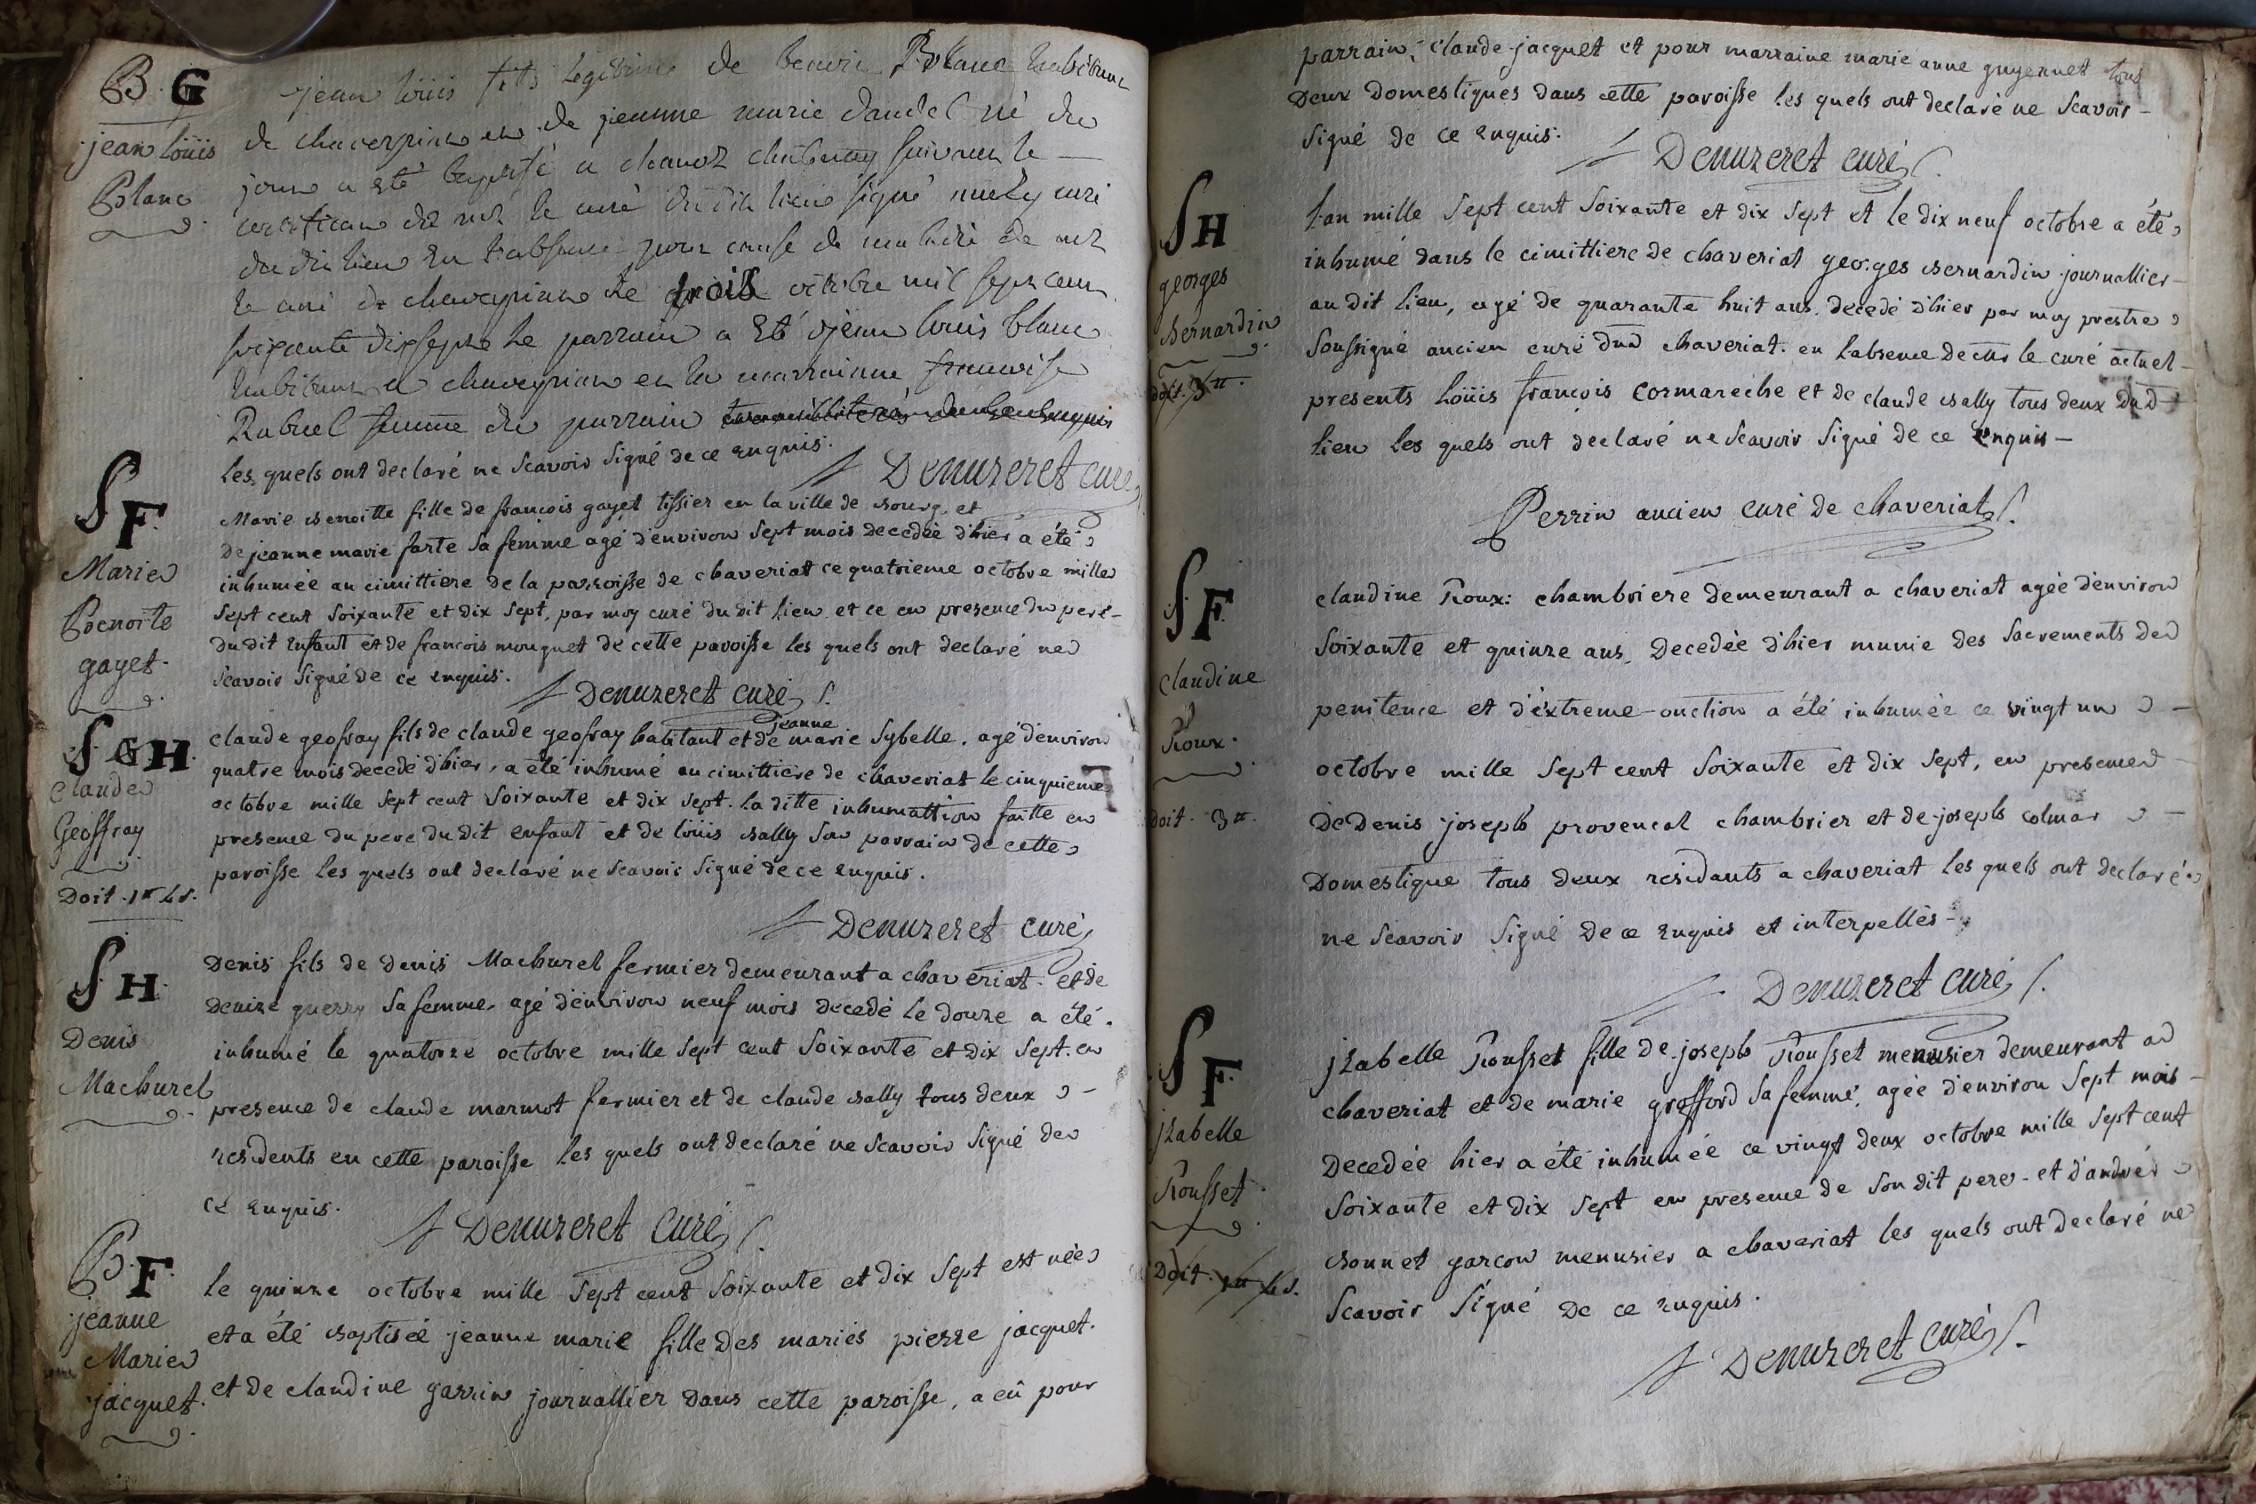 B. G
jean loüis
Blanc
jean loüis fils legitime de Blanc habitant
de chaveyriat et de jeanne marie dandel né du
jour a eté baptisé a chanoz chatenay suivant le
de mr le curé du dit lieu signé curé
du dit lieu en l'absence pour cause de maladie de mr
le curé de chaveyriat le trois octobre mil sept cent
soixante dix sept le parrain a eté jean louis blanc
habitant a chaveyriat et la marrainne francoise
Rabuel femme du parrain
les quels ont declaré ne scavoir signé de ce enquis.
Denuzeret curé
S F.
Marie
Benoite
gayet.
Marie benoitte fille de francois gayet tissier en la ville de bourg, et
de jeanne marie farte sa femme agé d'environ sept mois decedée d'hier a été
inhumée au cimittiere de la parroisse de chaveriat ce quatrieme octobre mille
sept cent soixante et dix sept, par moy curé du dit lieu et ce en presence du pere
du dit enfant et de francois mouguet de cette paroisse les quels ont declaré ne
scavoir signé de ce enquis.
Denuzeret curé
S. G H.
Claude
Geoffray
Doit. 1tt 4s.
claude geofray fils de claude geofray habitant et de jeanne marie Sybelle, agé d'environ
quatre mois decedé d'hier, a été inhumé au cimittiere de chaveriat le cinquieme
octobre mille sept cent soixante et dix sept. la ditte inhumattion faitte en
presence du pere du dit enfant et de loüis bally son parrain de cette
paroisse les quels ont declaré ne scavoir signé de ce enquis.
Denuzeret curé
S H.
Denis
Machurel
Denis fils de denis Machurel fermier demeurant a chaveriat. et de
denize guerry sa femme, agé d'environ neuf mois decedé le douze a été
inhumé le quatorze octobre mille sept cent soixante et dix sept. en
presence de claude marmot fermier et de claude bally tous deux
residents en cette paroisse les quels ont declaré ne scavoir signé de
ce enquis.
Denuzeret Curé
B. F.
jeanne
Marie
jacquet.
le quinze octobre mille sept cent soixante et dix sept est née
et a été baptisée jeanne marie fille des mariés pierre jacquet.
et de claudine garrin journallier dans cette paroisse, a eû pour
parrain, claude jacquet et pour marraine marie anne guyennet tous
Deux Domestiques dans cette paroisse les quels ont declaré ne scavoir
signé de ce enquis.
Denuzeret curé
S H
georges
bernardin
doit. 3tt.
L'an mille sept cent soixante et dix sept et le dix neuf octobre a été
inhumé dans le cimittiere de chaveriat georges bernardin journallier
au dit lieu, agé de quarante huit ans, decedé d'hier par moy prestre
soussigné ancien curé dud chaveriat. en l'absence de mr le curé actuel
presents Loüis francois cormareche et de claude bally tous deux dud
lieu les quels ont declaré ne scavoir signé de ce enquis
Perrin ancien curé de chaveriat
S. F.
Claudine
Roux.
doit. 3tt.
claudine Roux: chambriere demeurant a chaveriat agée d'environ
soixante et quinze ans, Decedée d'hier munie des sacrements de
penitence et d'éxtreme-onction a été inhumée ce vingt un
octobre mille sept cent soixante et dix sept, en presence
de Denis joseph provencal chambrier et de joseph colmar
Domestique tous deux residants a chaveriat les quels ont declaré
ne scavoir signé de ce enquis et interpellés
Denuzeret curé
S F.
jzabelle
Rousset.
Doit. 1tt 4s.
jzabelle Rousset fille de joseph Rousset menusier demeurant a
chaveriat et de marie grofford sa femme, agée d'environ sept mois
Decedée hier a été inhumée ce vingt deux octobre mille sept cent
soixante et dix sept en presence de son dit pere. et d'andré
bonnet garcon menusier a chaveriat les quels ont declaré ne
scavoir signé de ce enquis.
Denuzeret curé